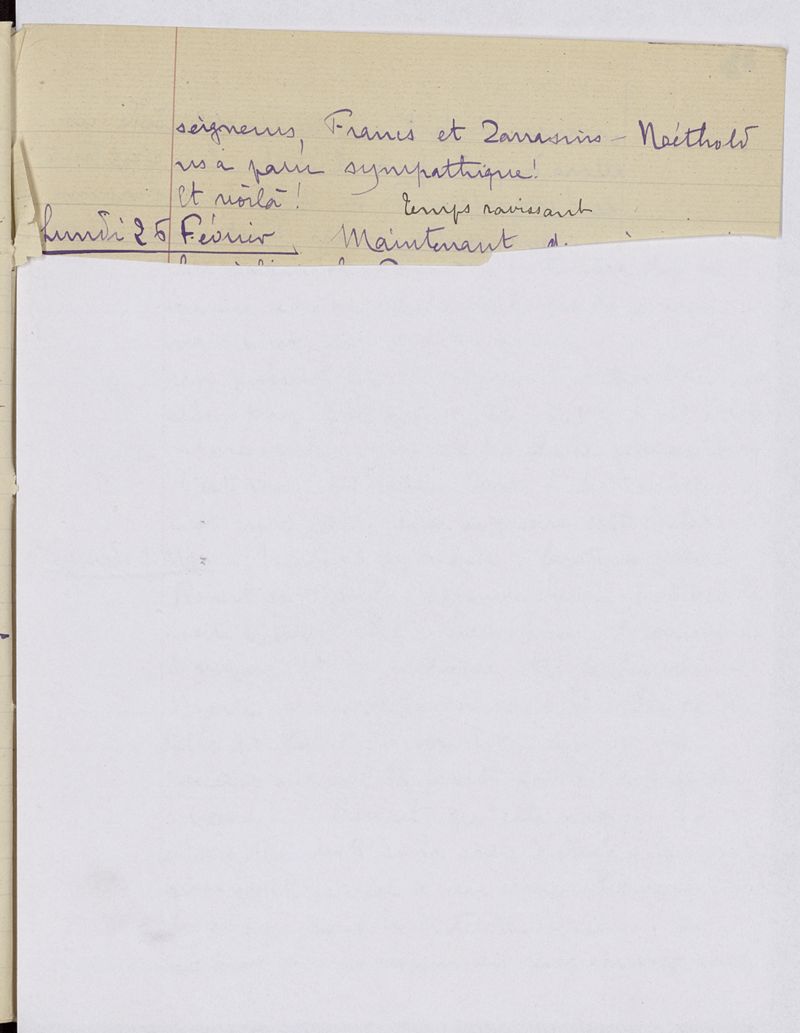 seigneurs, Francs et Zarrasins – Néethold
ns a paru sympathique!
Et voilà!
temps ravissant
Lundi 25 Février, Maintenant